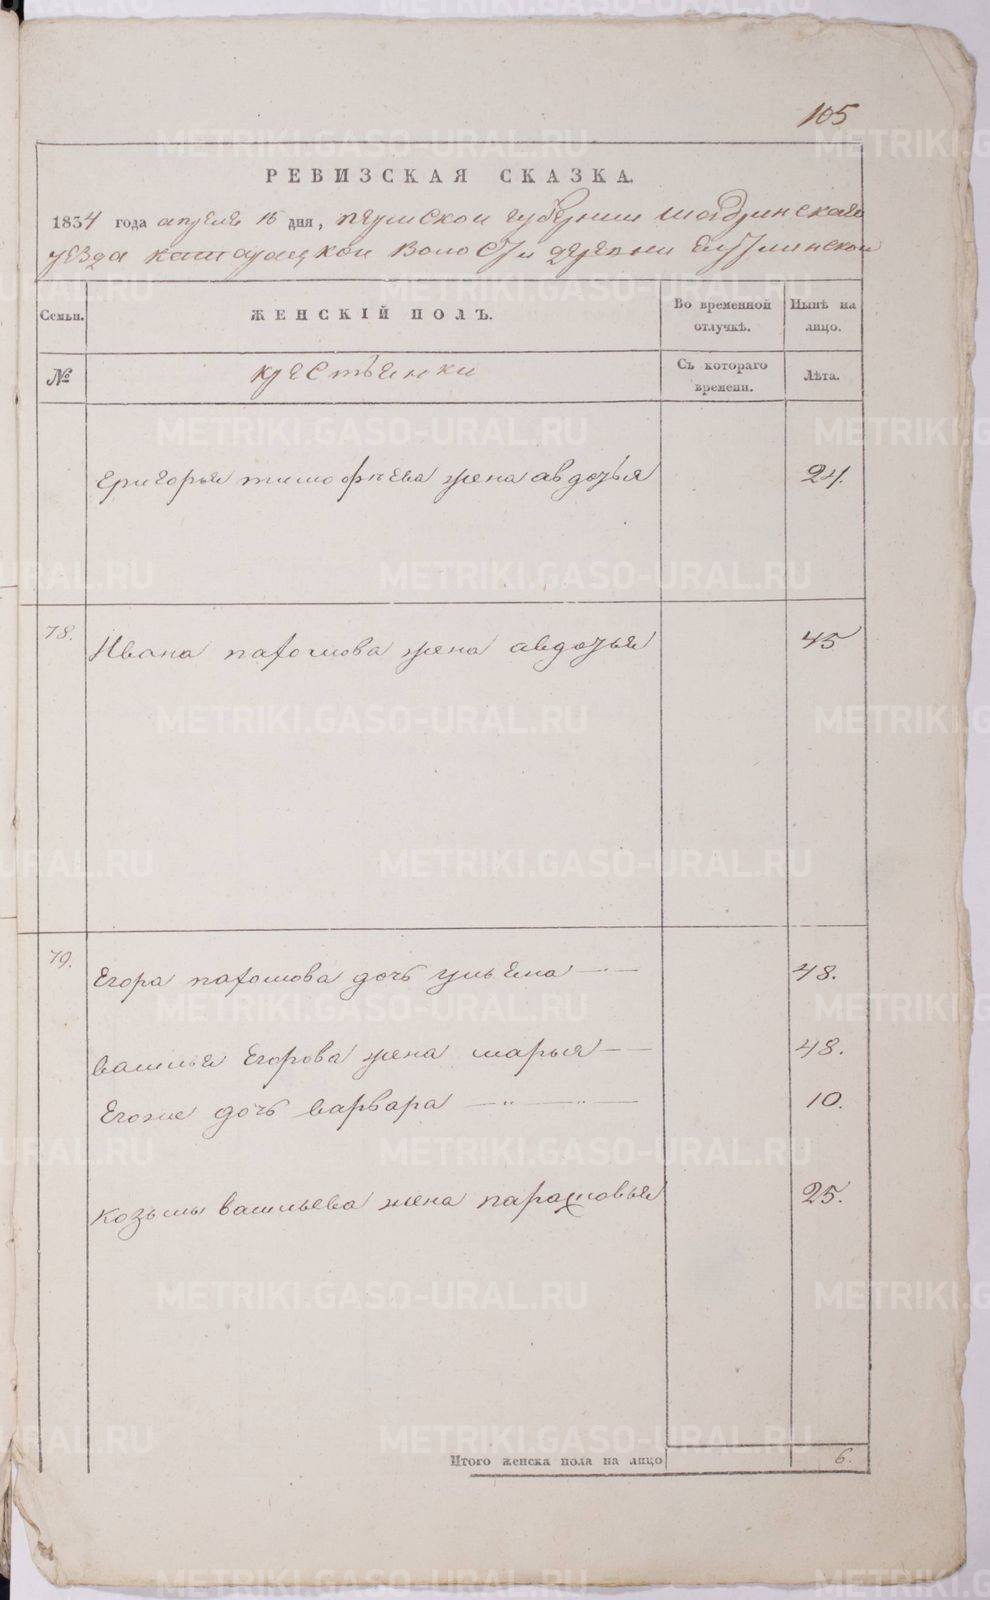 105
РЕВИЗСКАЯ СКАЗКА.
1834 года апреле 15 дня, пермской губернии шадринскаго
уезда катарацкой волости деревни
Семьи.
ЖЕНСКІЙ ПОЛЪ.
Во временной отлучкѣ.
Нынѣ на лицо.
№
крестьенки
Съ котораго времени.
Лѣта.
григорья тимофѣева жена авдотья 24.
78. Ивана пахомова жена авдотья 45
79. Егора пахомова дочь ульена 48.
василья Егорова жена марья 48.
Егоже дочь варвара 10.
козьмы васильева жена парасковья 25.
Итого женска пола на лицо 6.
METRIKI.GASO-URAL.RU